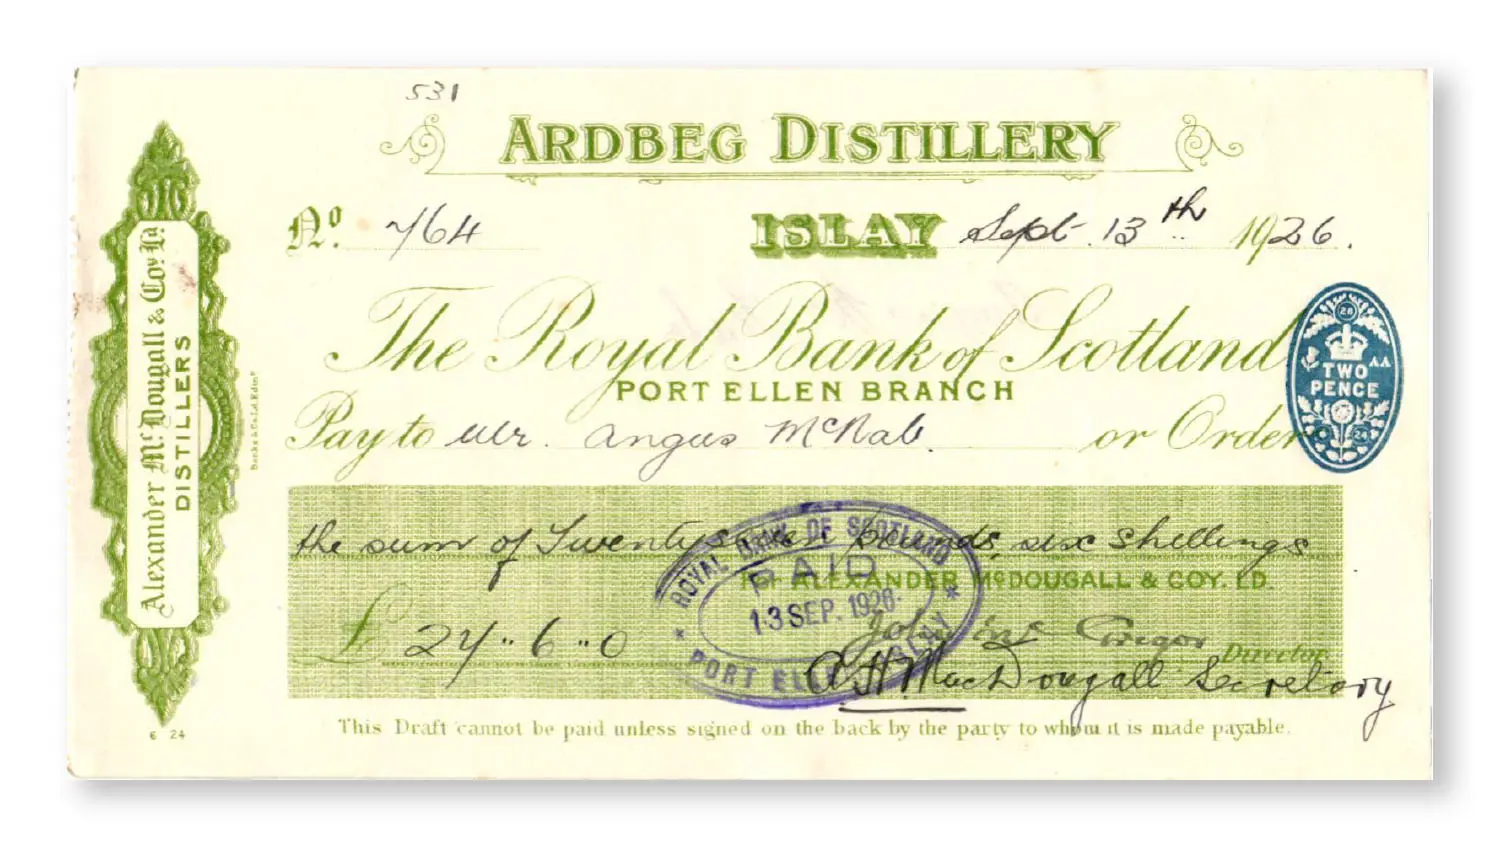 531
ARDBEG DISTILLERY
No. 764 ISLAY Sept. 13th 1926.
The Royal Bank of Scotland
PORT ELLEN BRANCH
TWO PENCE
28
AA
Pay to Mr. Angus McNab. or Order
the sum of Twenty seven Pounds, six shillings
For ALEXANDER McDOUGALL & COY. LD.
£ 27 " 6 " 0
John Director
A H MacDougall Secretary
ROYAL BANK OF SCOTLAND
PAID
13 SEP. 1926
PORT ELLEN ISLAY
This Draft cannot be paid unless signed on the back by the party to whom it is made payable.
Alexander McDougall & Coy. Ld.
DISTILLERS
6 24